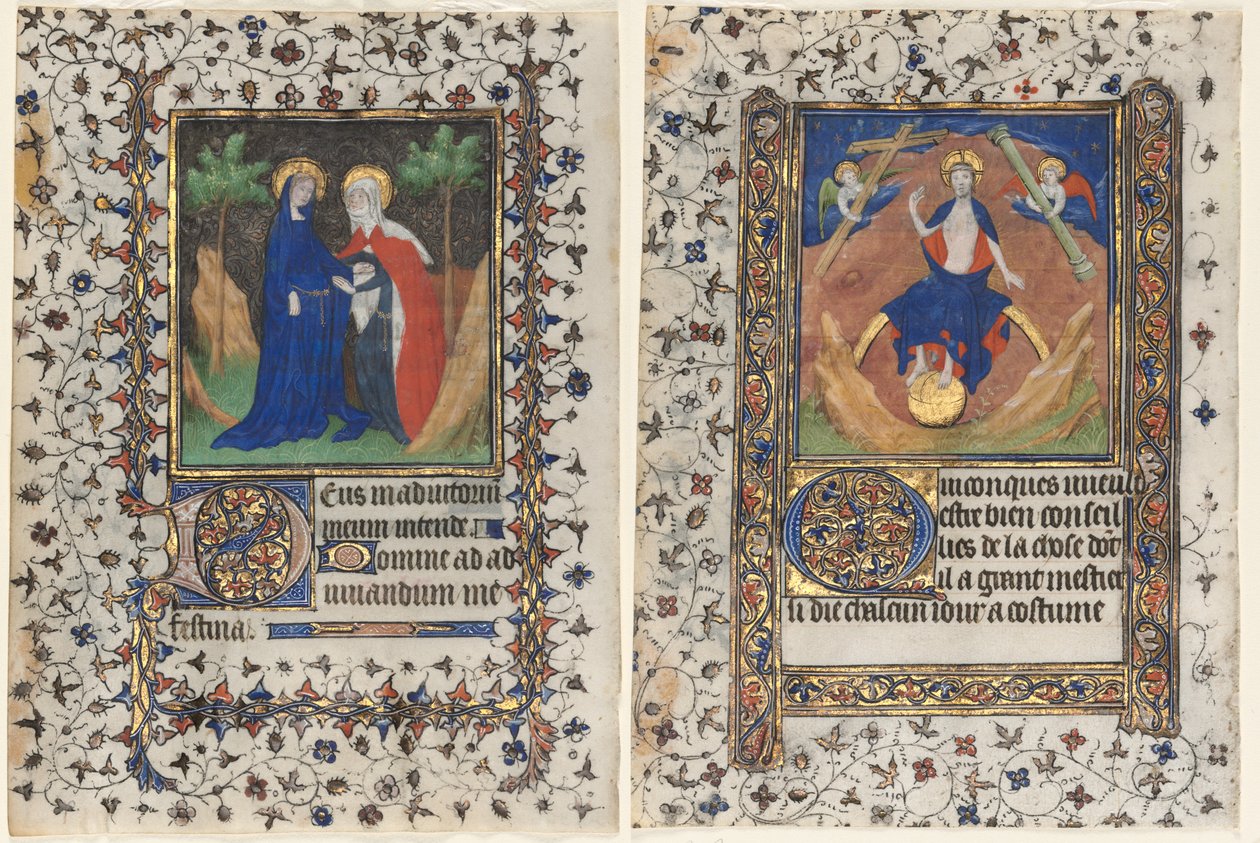 Deus in adiutorium
meum intende.
Domine ad ad
iuuandum me
festina.
Quiconques uieult
estre bien conseil
lies de la chose dōt
il a grant mestier
si die chascun iour a costume